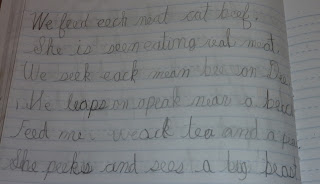 We feed each neat cat beef.
She is seen eating real meat.
We seek each mean bee on
He leaps on speak near a beach
Feed me weak tea and a
She peeks and sees a big beast